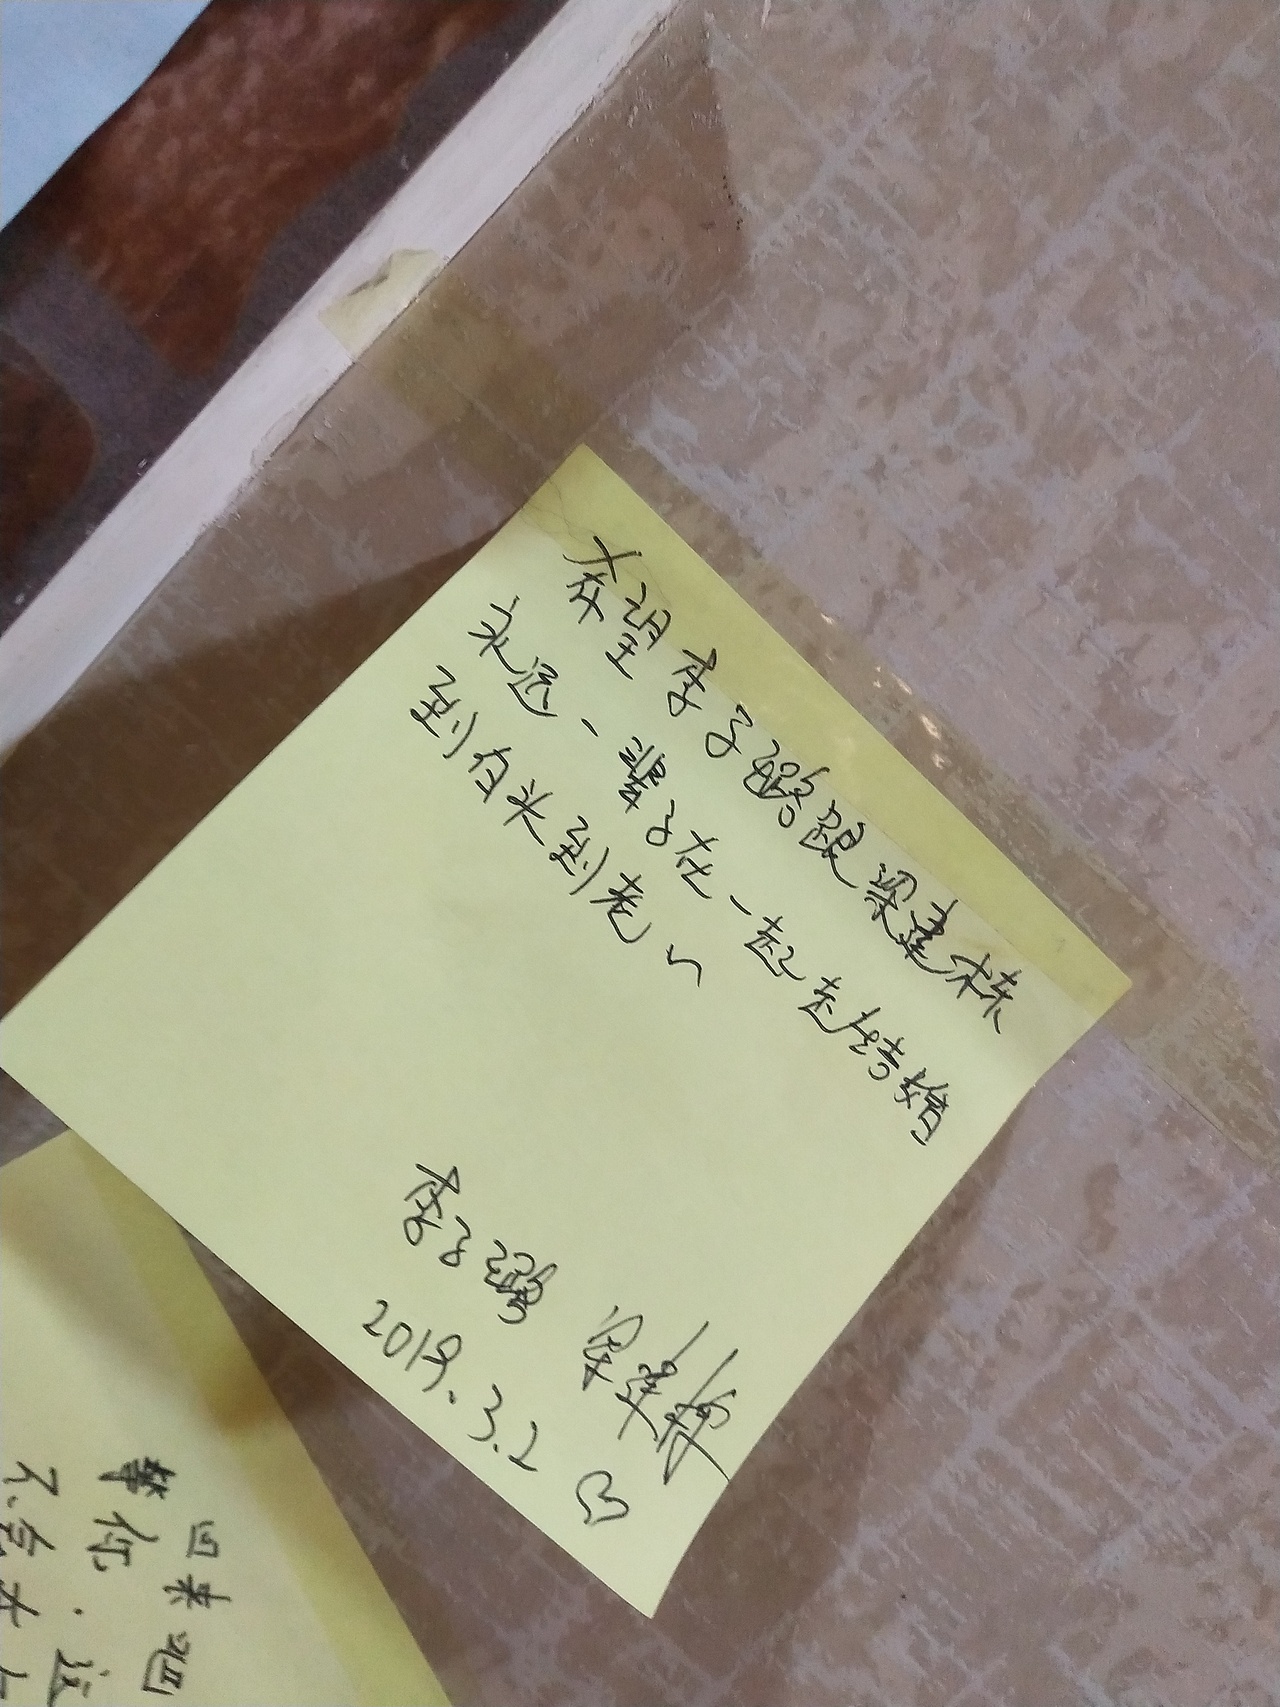 希望李子璐跟梁建栋
永远一辈子在一起走结婚
到白头到老~
李子璐 梁建栋
2019.3.2 ♡
回来吧
等你.这
不会太